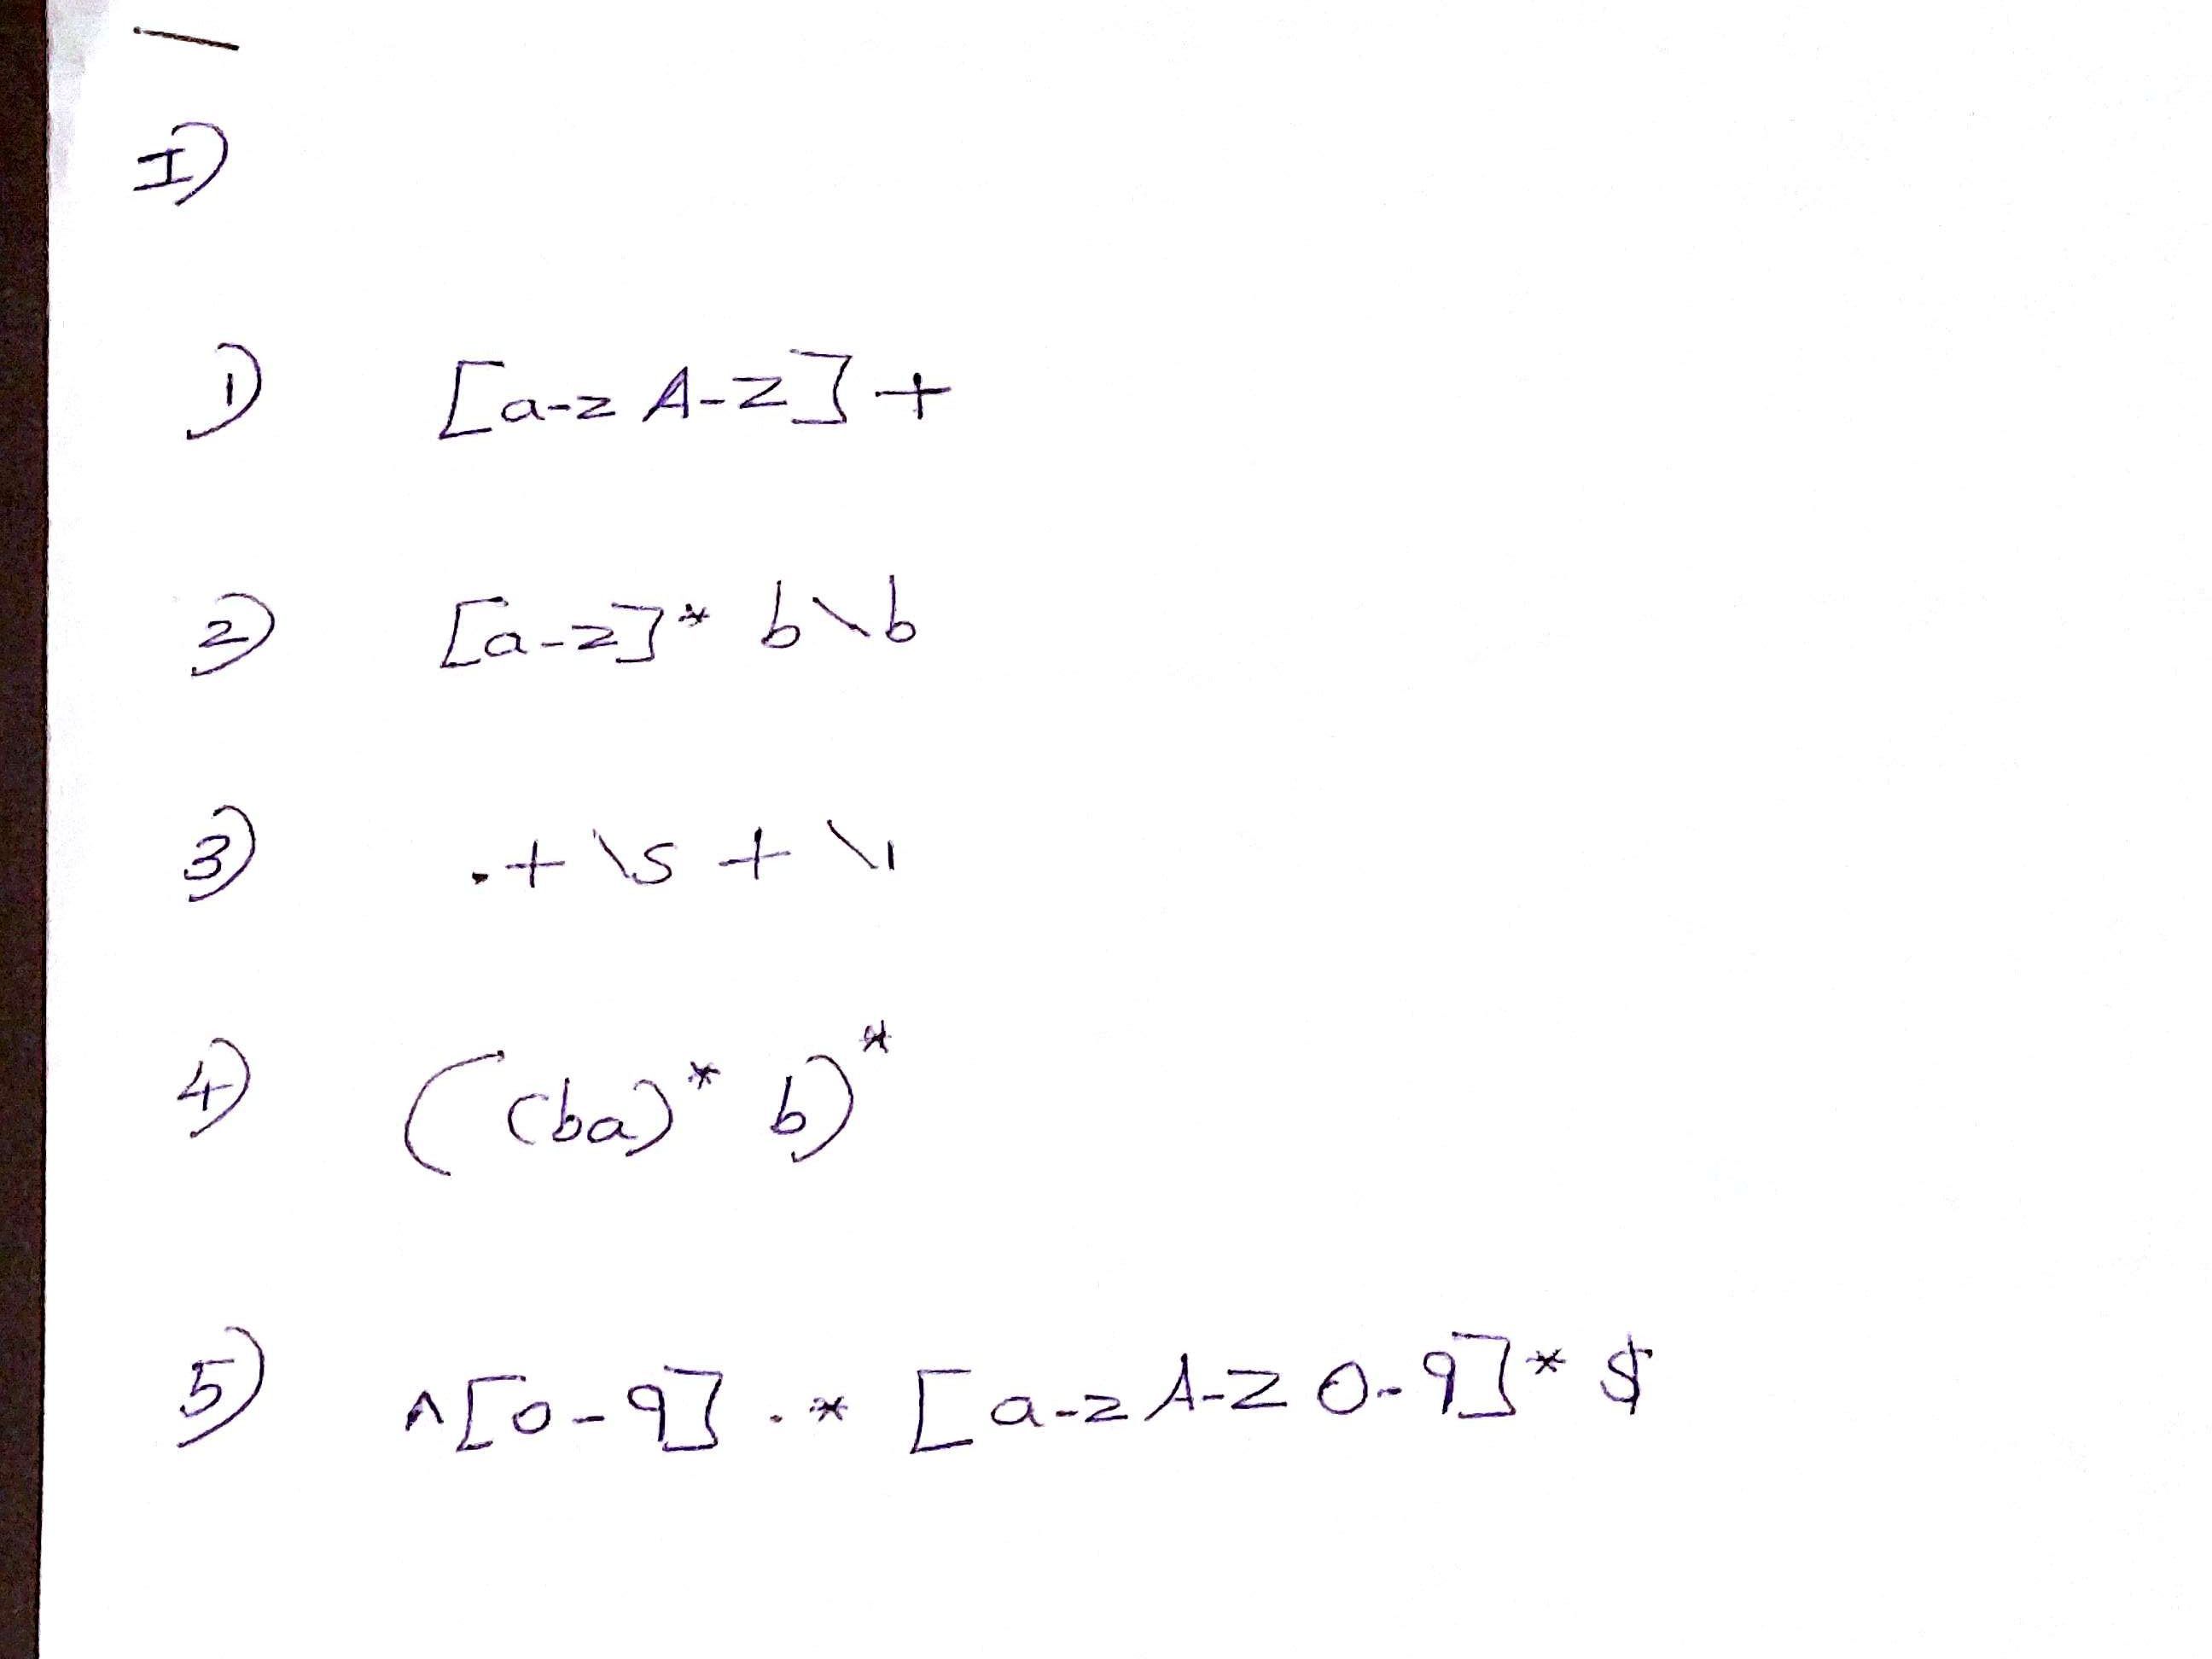 I)
1) [a-z A-Z]+
2) [a-z]* b\b
3) .+ \s + \1
4) ((ba)* b)*
5) ^[0-9] .* [a-z A-Z 0-9]* $